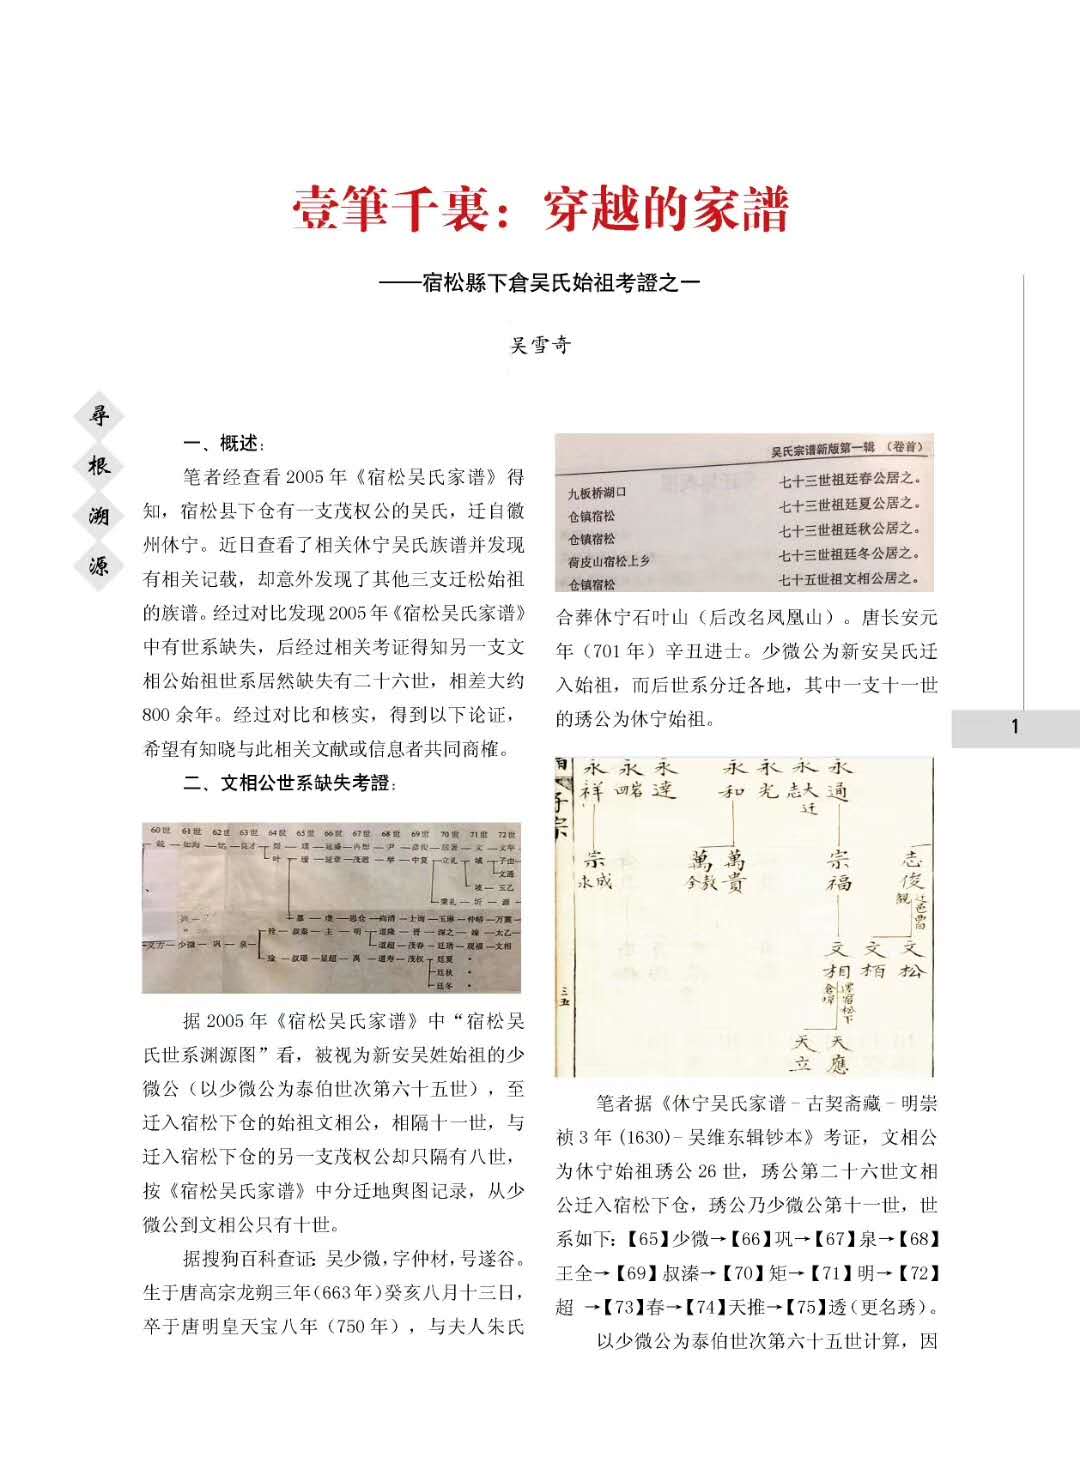 壹筆千裏：穿越的家譜
——宿松縣下倉吴氏始祖考證之一
吴雪奇
尋
根
溯
源
一、概述：
笔者经查看 2005 年《宿松吴氏家谱》得
知，宿松县下仓有一支茂权公的吴氏，迁自徽
州休宁。近日查看了相关休宁吴氏族谱并发现
有相关记载，却意外发现了其他三支迁松始祖
的族谱。经过对比发现 2005 年《宿松吴氏家谱》
中有世系缺失，后经过相关考证得知另一支文
相公始祖世系居然缺失有二十六世，相差大约
800 余年。经过对比和核实，得到以下论证，
希望有知晓与此相关文献或信息者共同商榷。
二、文相公世系缺失考證：
60世 61世 62世 63世 64世 65世 66世 67世 68世 69世 70世 71世 72世
据 2005 年《宿松吴氏家谱》中“宿松吴
氏世系渊源图”看，被视为新安吴姓始祖的少
微公（以少微公为泰伯世次第六十五世），至
迁入宿松下仓的始祖文相公，相隔十一世，与
迁入宿松下仓的另一支茂权公却只隔有八世，
按《宿松吴氏家谱》中分迁地舆图记录，从少
微公到文相公只有十世。
据搜狗百科查证：吴少微，字仲材，号遂谷。
生于唐高宗龙朔三年（663 年）癸亥八月十三日，
卒于唐明皇天宝八年（750 年），与夫人朱氏
吴氏宗谱新版第一辑 （卷首）
九板桥湖口 七十三世祖廷春公居之。
仓镇宿松 七十三世祖廷夏公居之。
仓镇宿松 七十三世祖廷秋公居之。
荷皮山宿松上乡 七十三世祖廷冬公居之。
仓镇宿松 七十五世祖文相公居之。
合葬休宁石叶山（后改名凤凰山）。唐长安元
年（701 年）辛丑进士。少微公为新安吴氏迁
入始祖，而后世系分迁各地，其中一支十一世
的琇公为休宁始祖。
1
永祥 永 永達 永和 永光 永志 大迁 永通
宗 永成 萬 全教 萬貴 宗福 志俊
文相 文栢 文松
三五
天立 天應
笔者据《休宁吴氏家谱 - 古契斋藏 - 明崇
祯 3 年 (1630)- 吴维东辑钞本》考证，文相公
为休宁始祖琇公 26 世，琇公第二十六世文相
公迁入宿松下仓，琇公乃少微公第十一世，世
系如下：【65】少微→【66】巩→【67】泉→【68】
王全→【69】叔溱→【70】矩→【71】明→【72】
超 →【73】春→【74】天推→【75】透（更名琇）。
以少微公为泰伯世次第六十五世计算，因